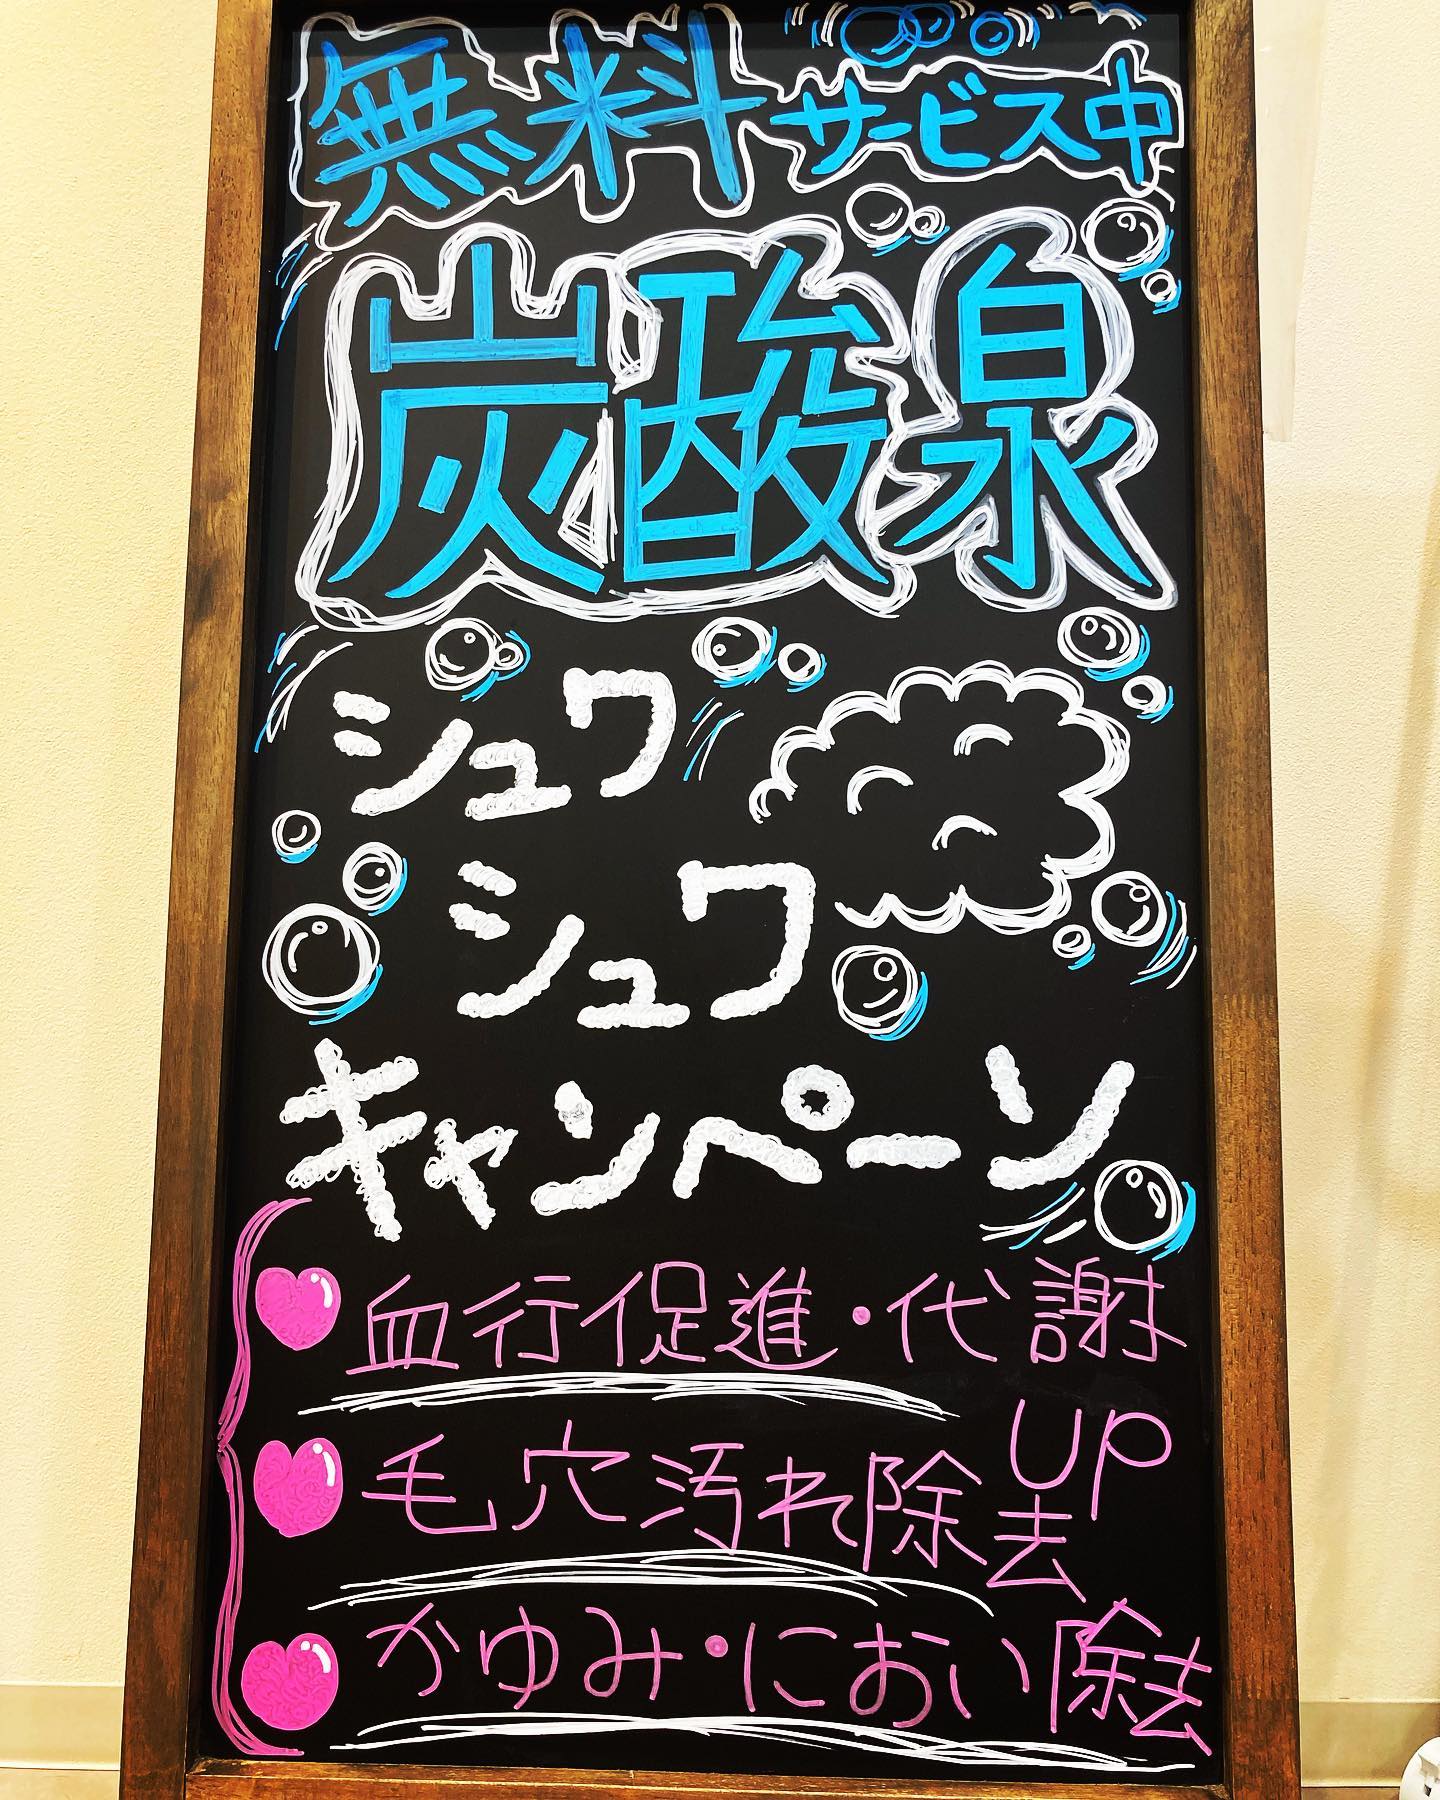 無料サービス中
炭酸泉
シュワ
シュワ
キャンペーン
血行促進・代謝
UP
毛穴汚れ除去
かゆみ・におい除去